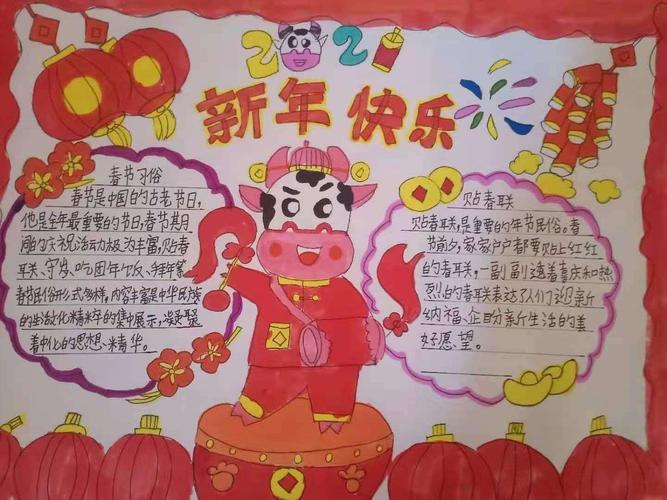 2021
新年快乐
春节习俗
春节是中国的古老节日,
他是全年最重要的节日,春节期
间的庆祝活动极为丰富,贴春
联、守岁、吃团年饭、拜年等
春节民俗形式多样,内容丰富是中华民族
的生活化精粹的集中展示,凝聚
着中化的思想、精华。
贴春联
贴春联,是重要的年节民俗。春
节前夕,家家户户都要贴上红红
的春联,一副副透着喜庆和热
烈的春联表达了人们迎新
纳福、企盼新生活的美
好愿望。